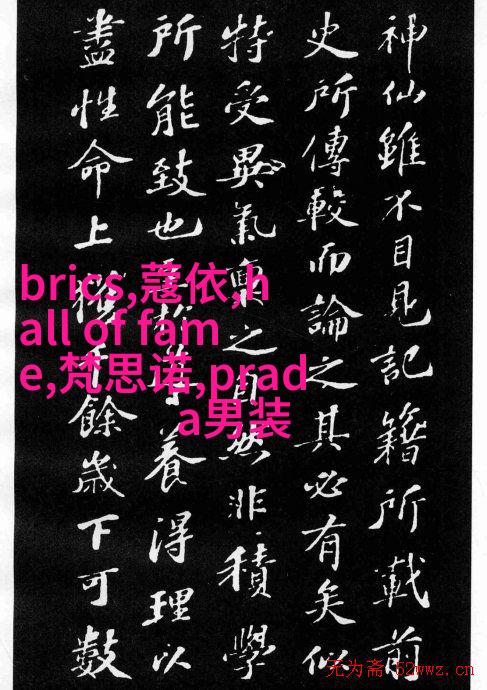 神仙雖不目見記籍所載前
史所傳較而論之其必有矣似
特受異氣禀之自然非積學
所能致也至於導養得理以
盡性命上獲千餘歲下可數
brics,蔻依,h
all of fam
e,梵思诺,prad
a男装
无为斋 52wwz.cn